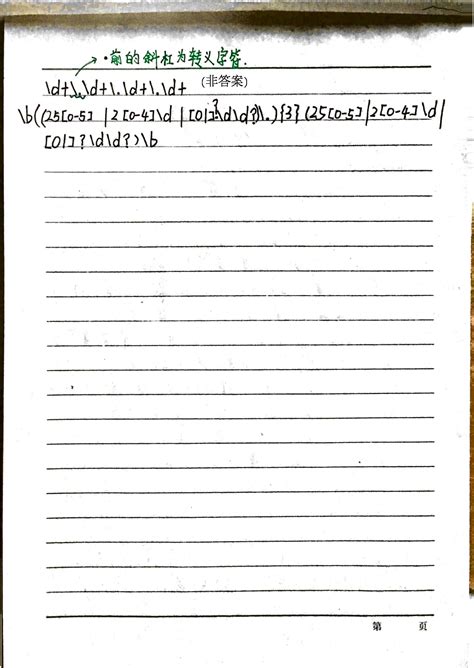 ·前的斜杠为转义字符.
\d+\.\d+\.\d+\.\d+ (非答案)
\b((25[0-5] | 2[0-4]\d | [01]?\d\d?)\.){3}(25[0-5]|2[0-4]\d|
[01]?\d\d?)\b
第 页